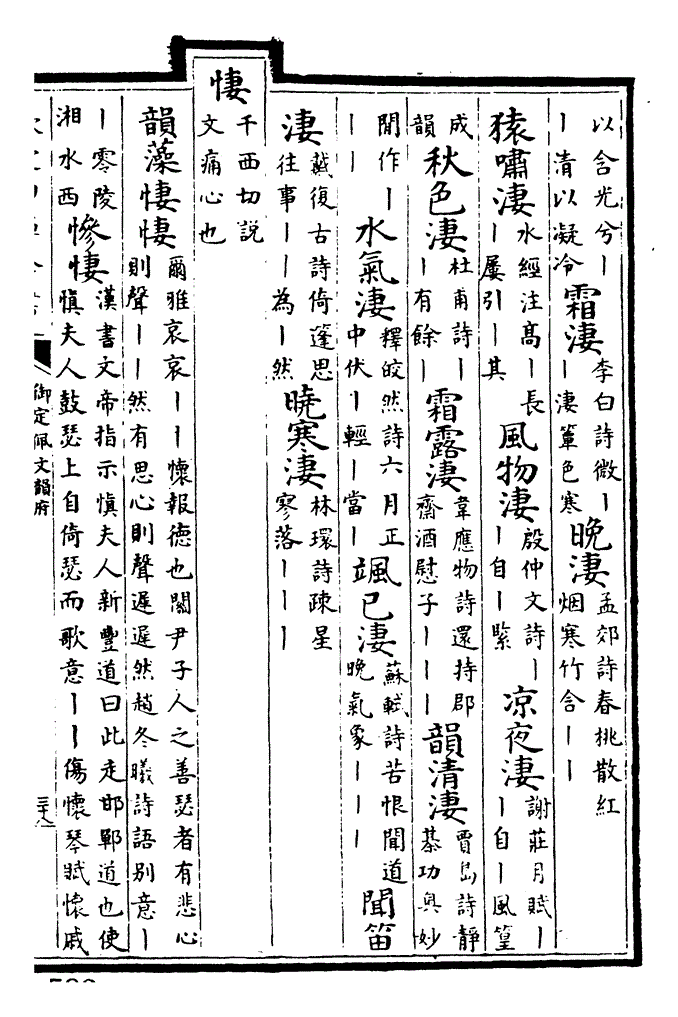 以含光兮｜｜清以凝冷霜淒李白詩微｜｜淒簟色寒晚淒孟郊詩春桃散紅烟寒竹含｜｜
猿嘯淒水經注高｜長｜屢引｜其風物淒殷仲文詩｜｜自｜緊涼夜淒謝莊月賦｜｜自｜風篁
成韻秋色淒杜甫詩｜｜有餘｜霜露淒韋應物詩還持郡齋酒慰子｜｜｜韻清淒賈島詩靜棊功奧妙
閒作｜｜｜水氣淒釋皎然詩六月正中伏｜輕｜當｜颯已淒蘇軾詩苦恨聞道晚氣象｜｜｜聞笛
淒戴復古詩倚篷思往事｜｜為｜然曉寒淒林環詩疎星寥落｜｜｜
悽千西切說文痛心也
韻藻悽悽爾雅哀哀｜｜懷報德也關尹子人之善瑟者有悲心則聲｜｜然有思心則聲遲遲然趙冬曦詩語别意｜
｜零陵湘水西慘悽漢書文帝指示慎夫人新豐道曰此走邯鄲道也使慎夫人鼓瑟上自倚瑟而歌意｜｜傷懷琴賦懷戚
御定佩文韻府